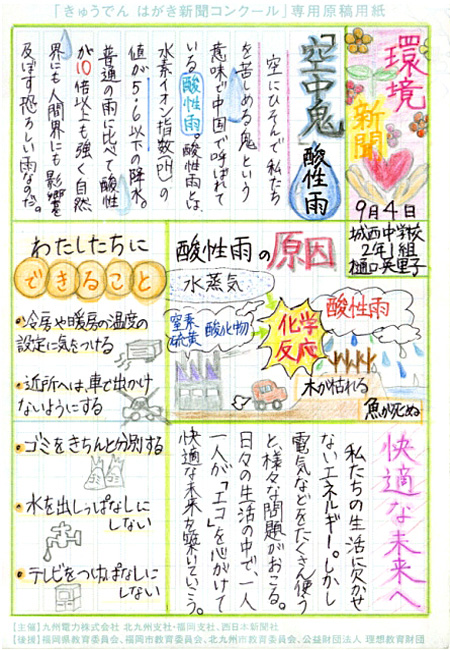 「きゅうでん はがき新聞コンクール」専用原稿用紙
環境
新聞
9月4日
城西中学校
2年1組
樋口英里子
「空中鬼」酸性雨
空にひそんで私たち
を苦しめる鬼という
意味で中国で呼ばれて
いる酸性雨。酸性雨とは、
水素イオン指数(pH)の
値が5.6以下の降水。
普通の雨に比べて酸性
が10倍以上も強く自然
界にも人間界にも影響を
及ぼす恐ろしい雨なのだ。
酸性雨の原因
水蒸気
窒素
硫黄
酸化物
化学
反応
酸性雨
木が枯れる
魚が死ぬ
わたしたちに
できること
•冷房や暖房の温度の
設定に気をつける
•近所へは、車で出かけ
ないようにする
•ゴミをきちんと分別する
•水を出しっぱなしに
しない
•テレビをつけっぱなしに
しない
快適な未来へ
私たちの生活に欠かせ
ないエネルギー。しかし
電気などをたくさん使う
と、様々な問題がおこる。
日々の生活の中で、一人
一人が「エコ」を心がけて
快適な未来を築いていこう。
【主催】九州電力株式会社 北九州支社・福岡支社、西日本新聞社
【後援】福岡県教育委員会、福岡市教育委員会、北九州市教育委員会、公益財団法人 理想教育財団